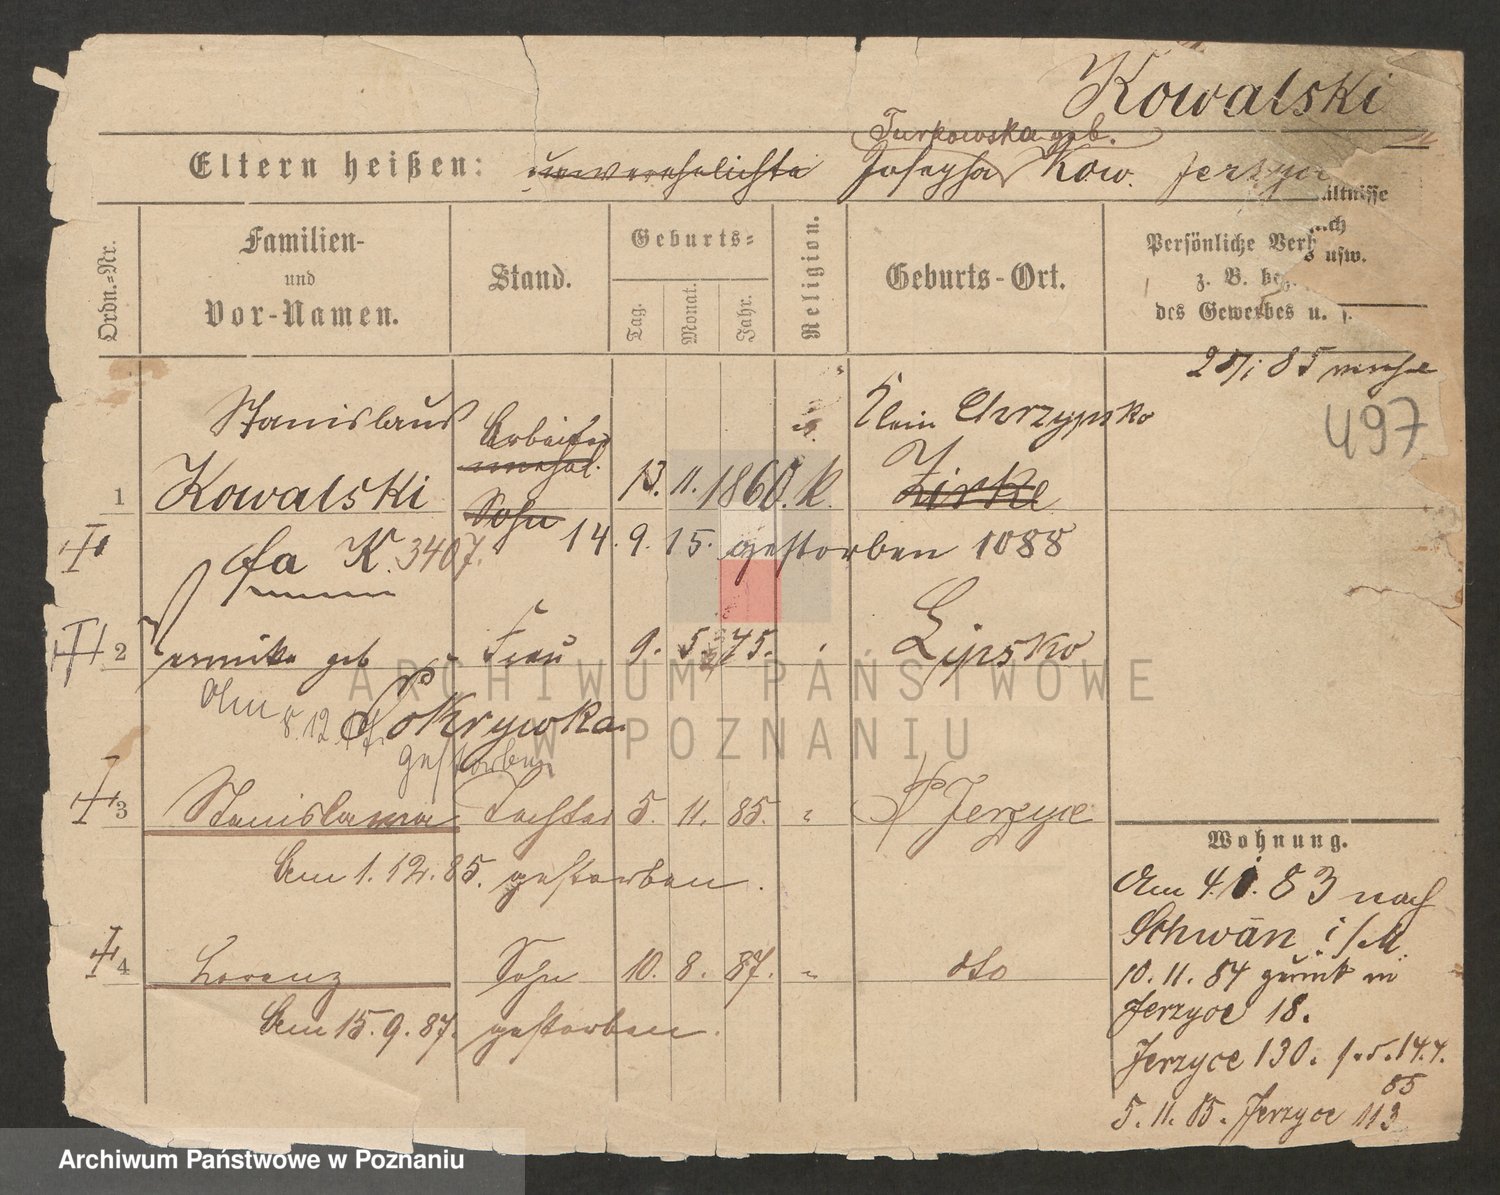 Kowalski
Turkowska geb.
Eltern heißen: unverehelichte Josepha Kow. Jerzyce
Ordn.-Nr.
Familien-
und
Vor-Namen.
Stand.
Geburts-
Tag.
Monat.
Jahr.
Religion.
Geburts-Ort.
Persönliche Verhältnisse
z. B.
des Gewerbes u. s. usw.
85
497
Stanislaus Arbeiter Klein Chrzypsko
1 Kowalski 13. 11. 1860. k. Zirke
Sohn
fa K. 3407. 14. 9. 15. gestorben 1088
2 geb Frau 9. 5. 75. Lipsko
Am 8.12. Pokrywka.
gestorben
3 Stanislawa Tochter 5. 11. 85. " Jerzyce
Am 1. 12. 85. gestorben.
4 Lorenz Sohn 10. 8. 87. " dto
Am 15. 9. 87. gestorben.
Wohnung.
Am 4. 83 nach
Schwan i/M.
10. 11. 84 zurück in
Jerzyce 18.
Jerzyce 130. 14.4.
85
5. 11. 85. Jerzyce 113
ARCHIWUM PAŃSTWOWE
W POZNANIU
Archiwum Państwowe w Poznaniu